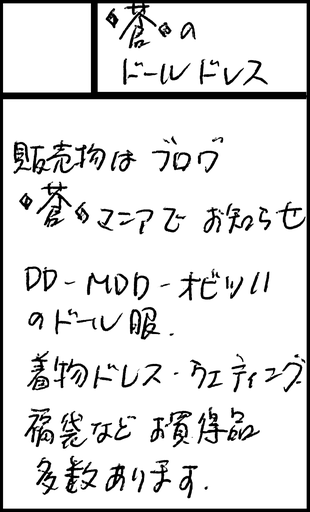 ◊蒼◊の
ドールドレス
販売物は ブログ
◊蒼◊マニアで お知らせ
DD-MDD-オビツ11
のドール服.
着物ドレス・ウエディング
福袋など お買得品
多数あります.